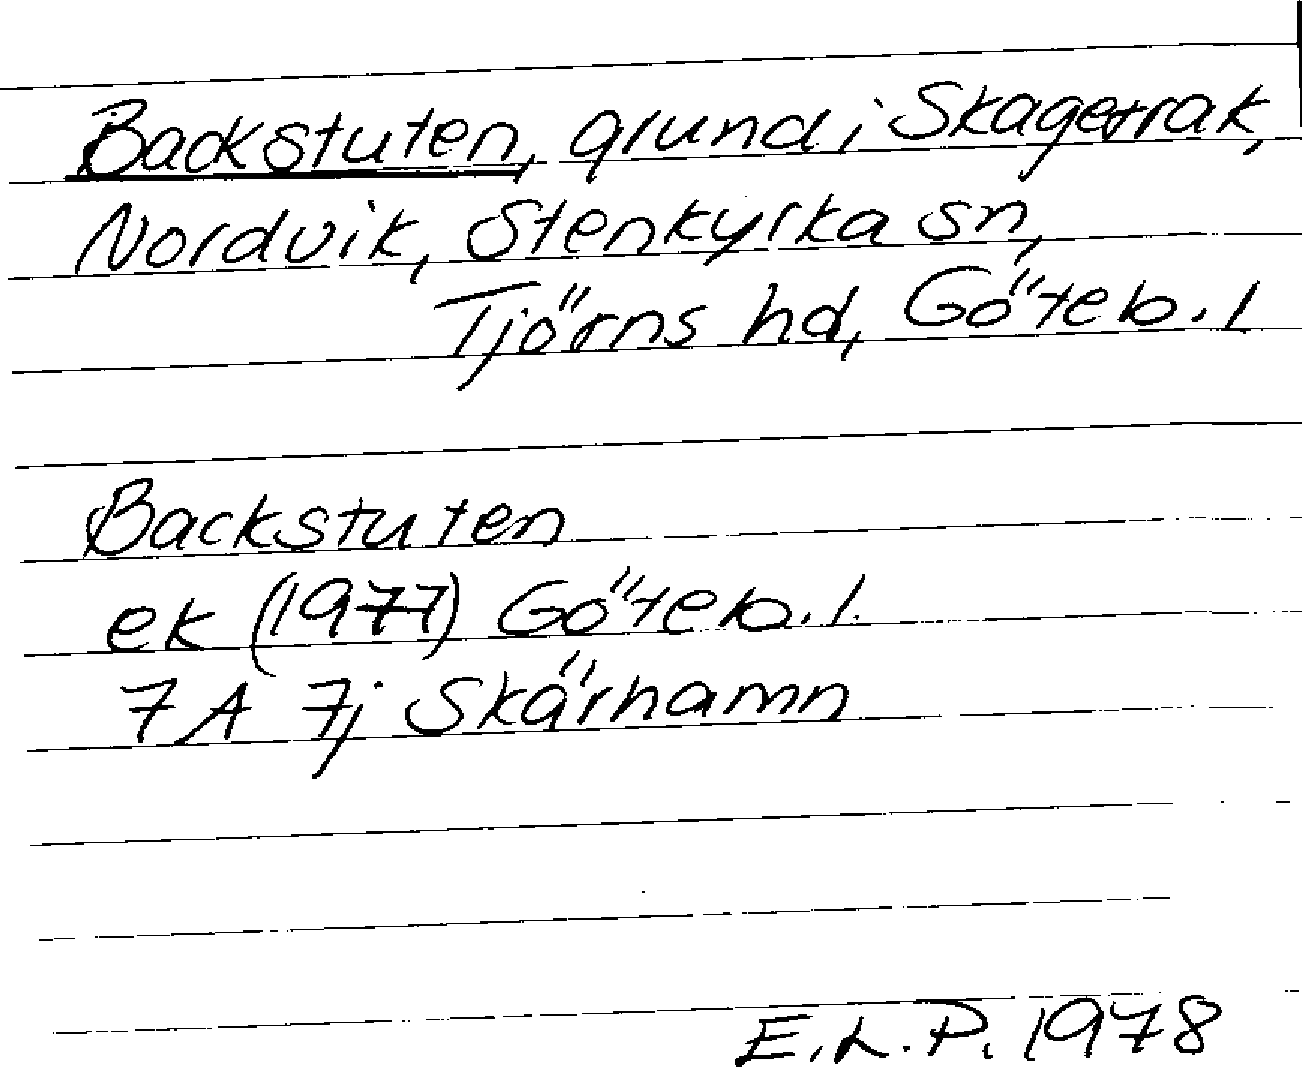 Backstuten, grund i Skagerrak,
Nordvik, Stenkyrka sn,
Tjörns hd, Göteb. l
Backstuten
ek (1977) Göteb. l.
7 A 7j Skärhamn
E.L.P. 1978